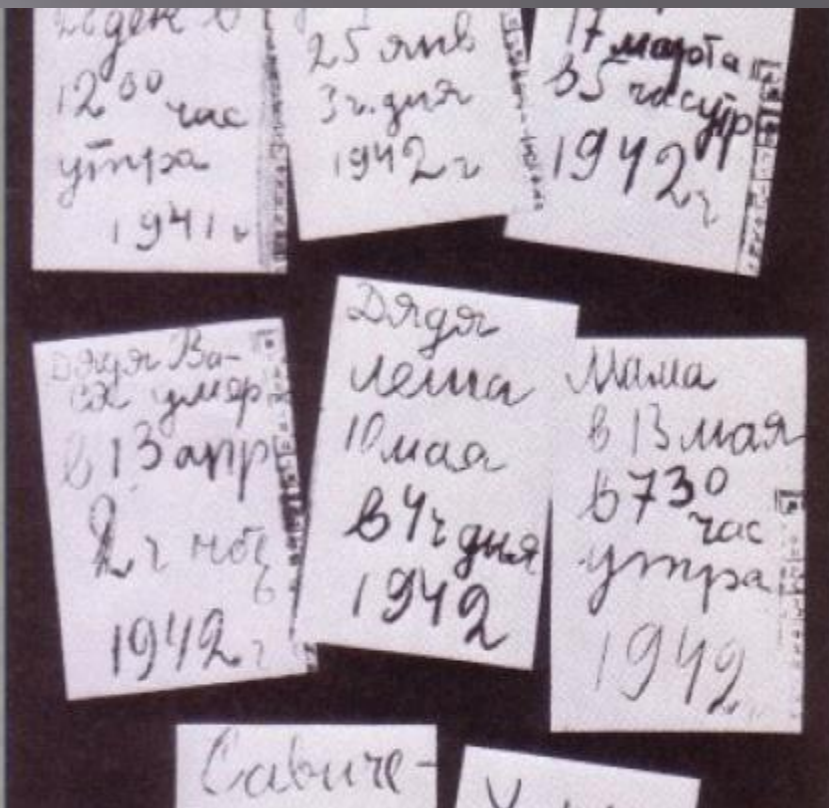 28 дек в
12 00 час
утра
1941 г
25 янв
3 ч. дня
1942 г
17 марта
в 5 час утр
1942 г
Дядя Ва-
ся умер
в 13 апр
2 ч ноч
1942 г
Дядя
Леша
10 мая
в 4 ч дня
1942
Мама
в 13 мая
в 730
час
утра
1942
Савиче-